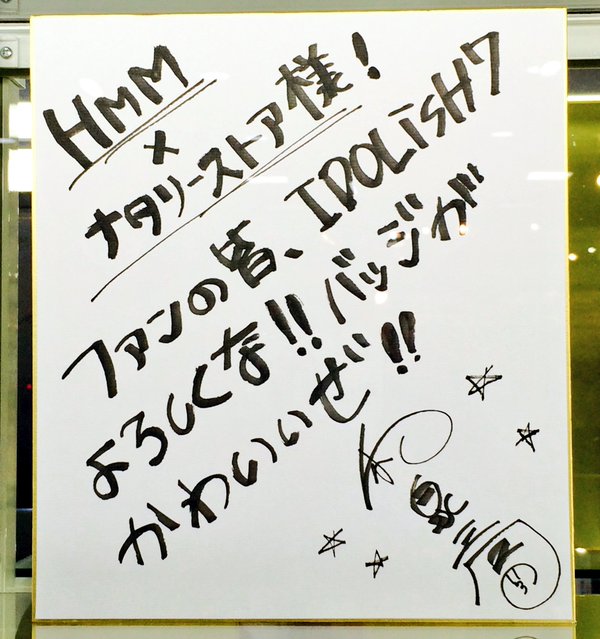 HMM
×
ナタリーストア様!
ファンの皆、IDOLiSH7
よろしくな!!バッジが
かわいいぜ!!